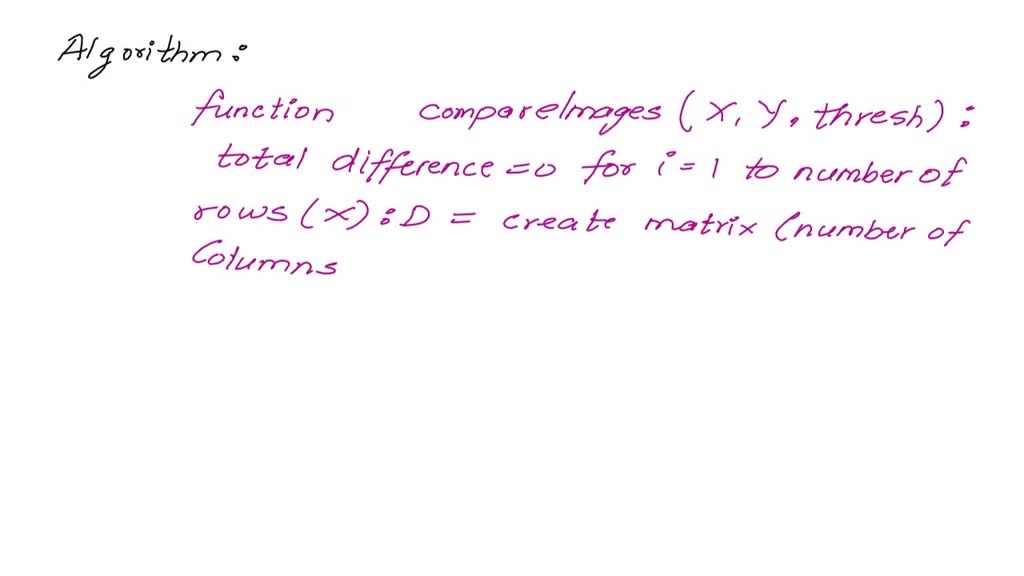 Algorithm:
function compareImages (X, Y, thresh):
total difference = 0 for i = 1 to number of
rows (x): D = create matrix (number of
Columns